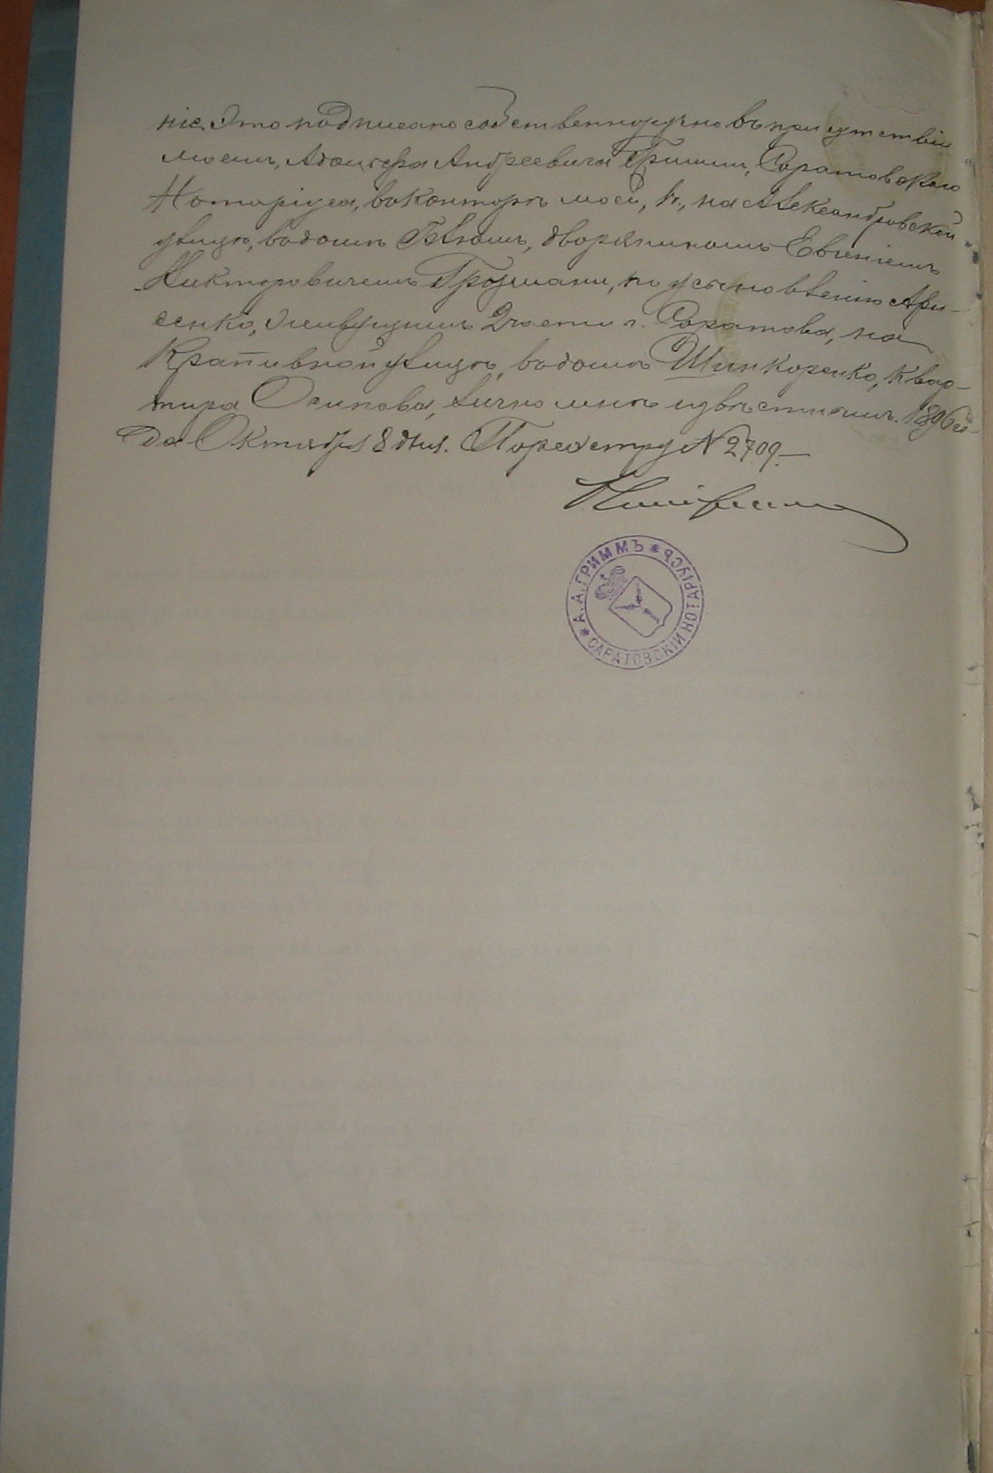 ніе. Это подписано собственноручно въ присутствіи
моемъ, Адольфа Андреевича Гриммъ, Саратовскаго
Нотаріуса, въ конторѣ моей, на Александровской
улицѣ, въ домѣ дворяниномъ Евгеніемъ
Викторовичемъ по усыновленію Ари-
сенко, живущимъ 2 части г. Саратова, на
Крапивной улицѣ, въ домѣ Шинкаренко, квар-
тира Осипова, лично мнѣ извѣстнымъ. 1896 го-
да Октября 8 дня. По реестру № 2709.
* А. А. ГРИММЪ * САРАТОВСКІЙ НОТАРІУСЪ